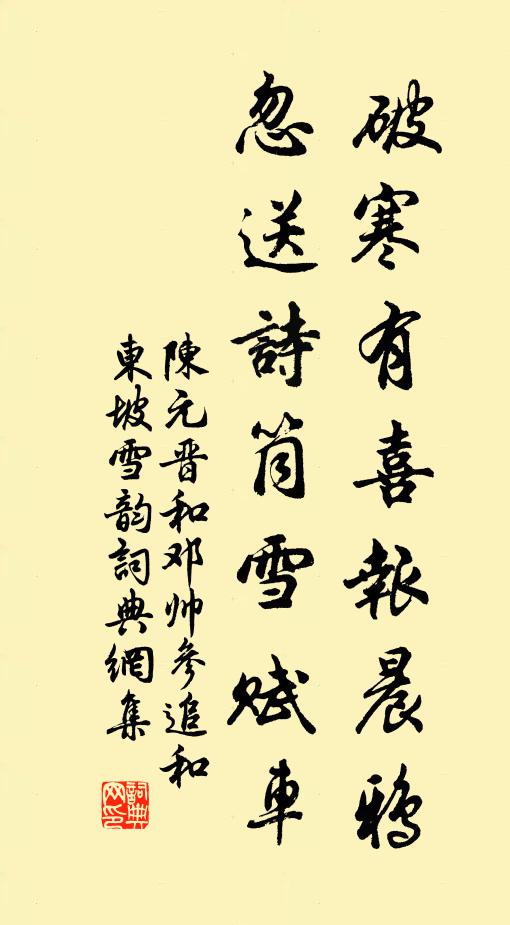 破寒有喜報晨鴉
忽送詩筒雪賦車
陳元晋和邓帅參追和
東坡雪韵詞典網集
詞典
网印